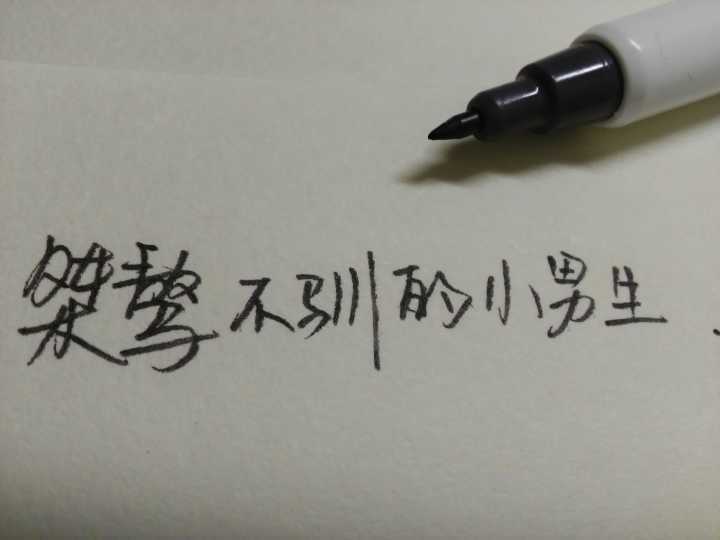 桀骜不驯的小男生